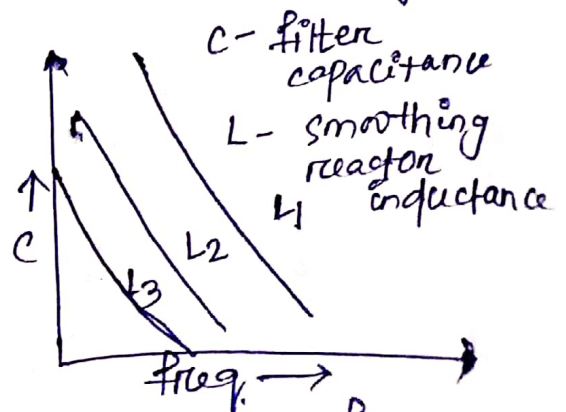 C- filter
capacitance
L- smoothing
reactor
inductance
L1
C
L2
L3
freq.